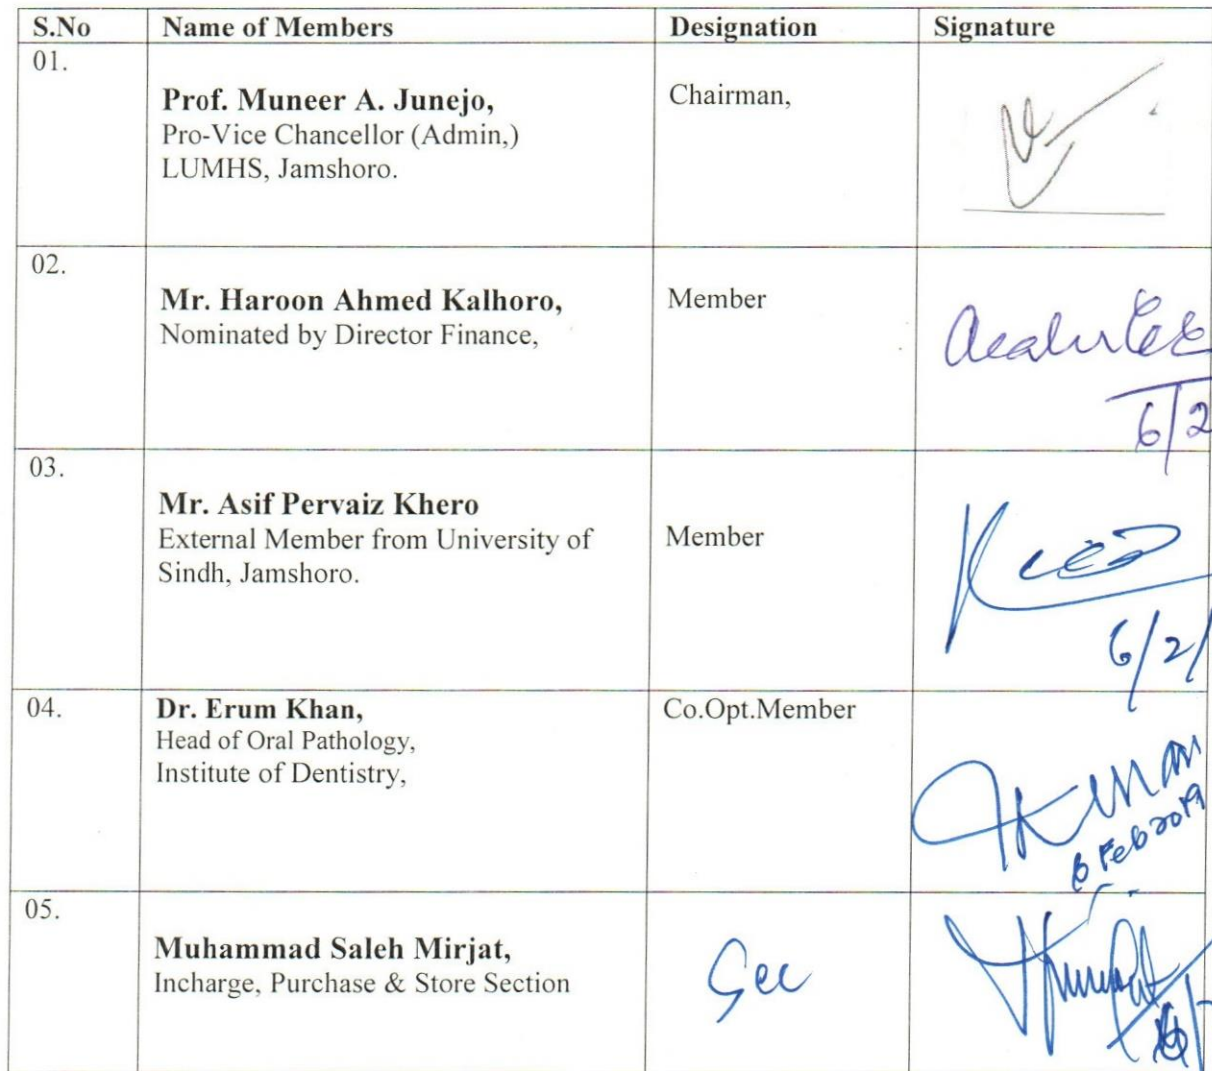 S.No Name of Members Designation Signature
01.
Prof. Muneer A. Junejo, Chairman,
Pro-Vice Chancellor (Admin,)
LUMHS, Jamshoro.
02.
Mr. Haroon Ahmed Kalhoro, Member
Nominated by Director Finance,
6/2
03.
Mr. Asif Pervaiz Khero
External Member from University of Member
Sindh, Jamshoro.
6/2/
04. Dr. Erum Khan, Co.Opt.Member
Head of Oral Pathology,
Institute of Dentistry,
6 Feb 2019
05.
Muhammad Saleh Mirjat, Sec
Incharge, Purchase & Store Section